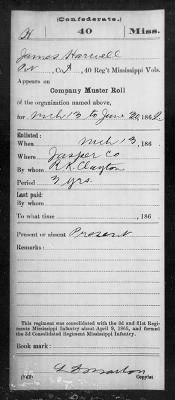 (Confederate.)
H 40 Miss.
James Harwell
Pvt, Co. , 40 Reg't Mississippi Vols.
Appears on
Company Muster Roll
of the organization named above,
for Mch 13 to June 30, 1862
Enlisted:
When Mch 13, 186
Where Jasper Co
By whom R.K. Clayton
Period 3 yrs.
Last paid:
By whom
To what time , 186
Present or absent Present
Remarks:
This regiment was consolidated with the 3d and 31st Regiments Mississippi Infantry about April 9, 1865, and formed
the 3d Consolidated Regiment Mississippi Infantry.
Book mark:
(642)
Copyist